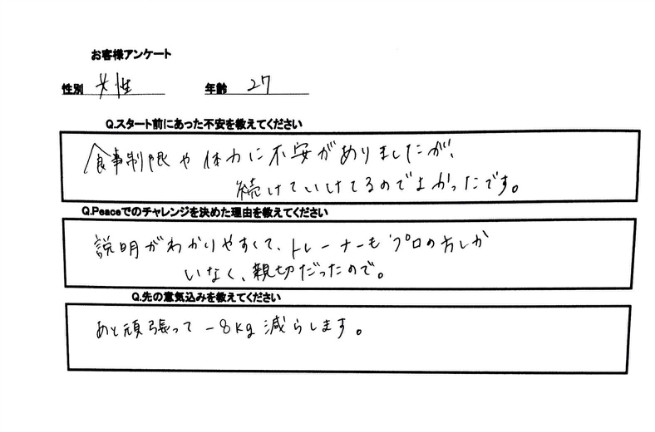 お客様アンケート
性別 女性 年齢 27
Q.スタート前にあった不安を教えてください
食事制限や体力に不安がありましたが、
続けていけてるのでよかったです。
Q.Peaceでのチャレンジを決めた理由を教えてください
説明がわかりやすくて、トレーナーもプロの方しか
いなく、親切だったので。
Q.先の意気込みを教えてください
あと頑張って-8kg減らします。